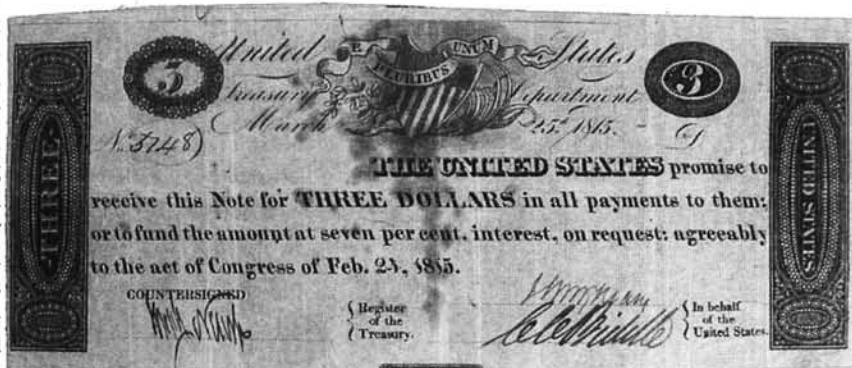 3 United E PLURIBUS UNUM States 3
Treasury Department
March 25th 1815.
No. 5748)
THREE
UNITED STATES
THE UNITED STATES promise to
receive this Note for THREE DOLLARS in all payments to them;
or to fund the amount at seven per cent. interest, on request: agreeably
to the act of Congress of Feb. 24, 1815.
COUNTERSIGNED
Register
of the
Treasury.
In behalf
of the
United States.